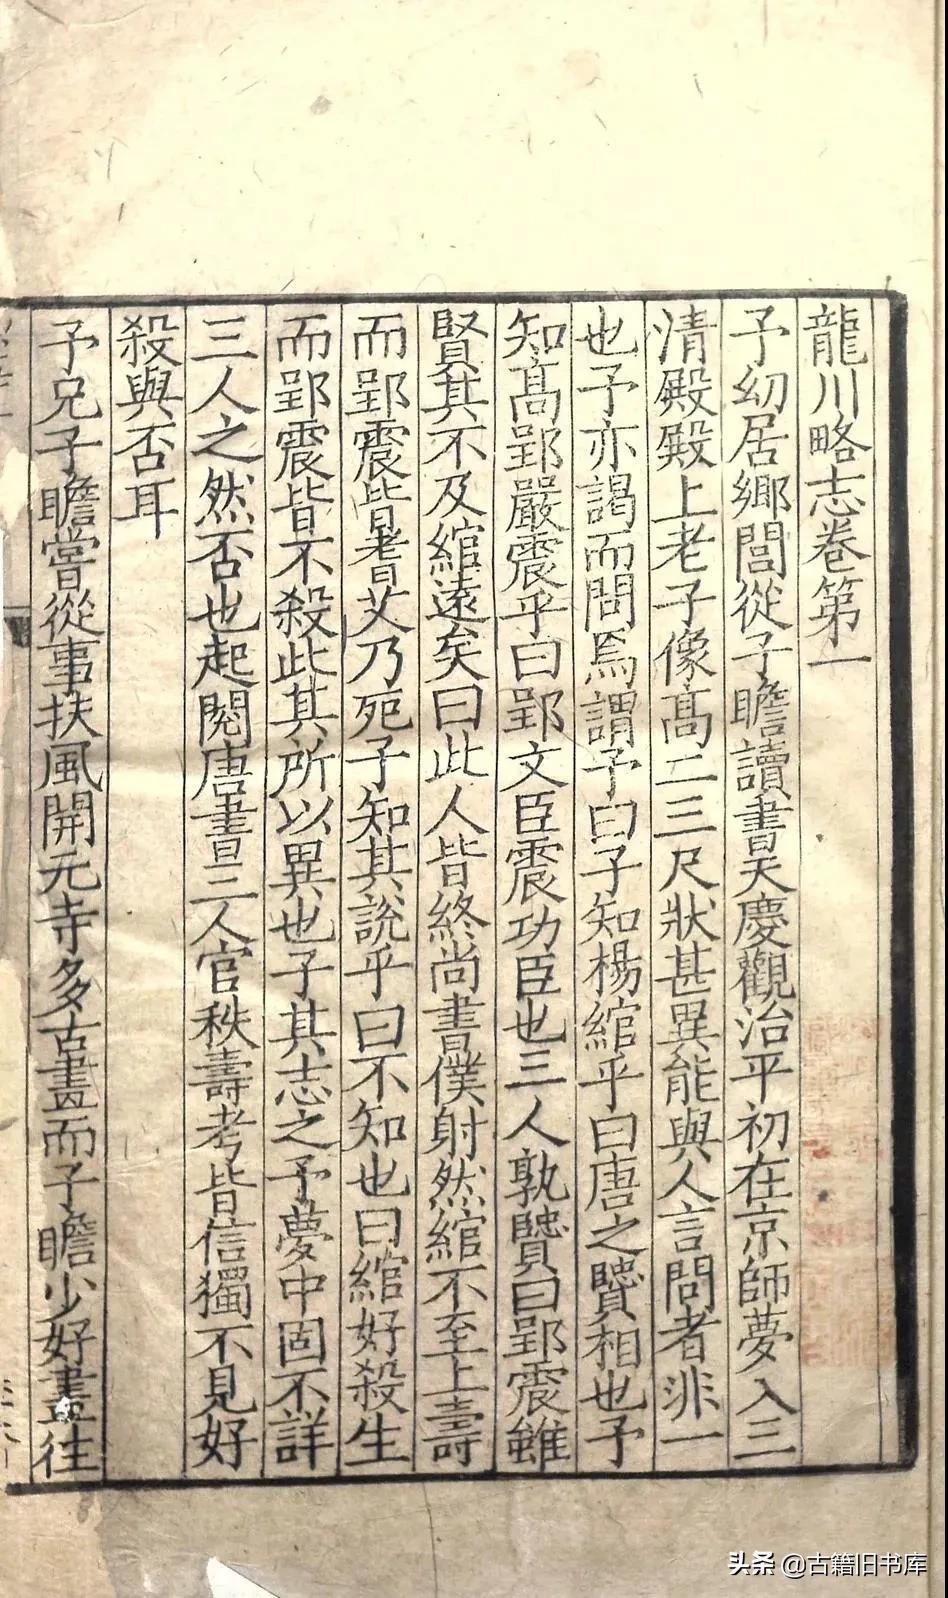 龍川略志卷第一
予幼居鄉閭從子瞻讀書天慶觀治平初在京師夢入三
清殿殿上老子像高二三尺狀甚異能與人言問者非一
也予亦謁而問焉謂予曰子知楊綰乎曰唐之賢相也予
知高郢嚴震乎曰郢文臣震功臣也三人孰賢曰郢震雖
賢其不及綰遠矣曰此人皆終尚書僕射然綰不至上壽
而郢震皆耆艾乃死子知其說乎曰不知也曰綰好殺生
而郢震皆不殺此其所以異也子其志之予夢中固不詳
三人之然否也起閱唐書三人官秩壽考皆信獨不見好
殺與否耳
予兄子瞻嘗從事扶風開元寺多古畫而子瞻少好畫往
头条 @古籍旧书库